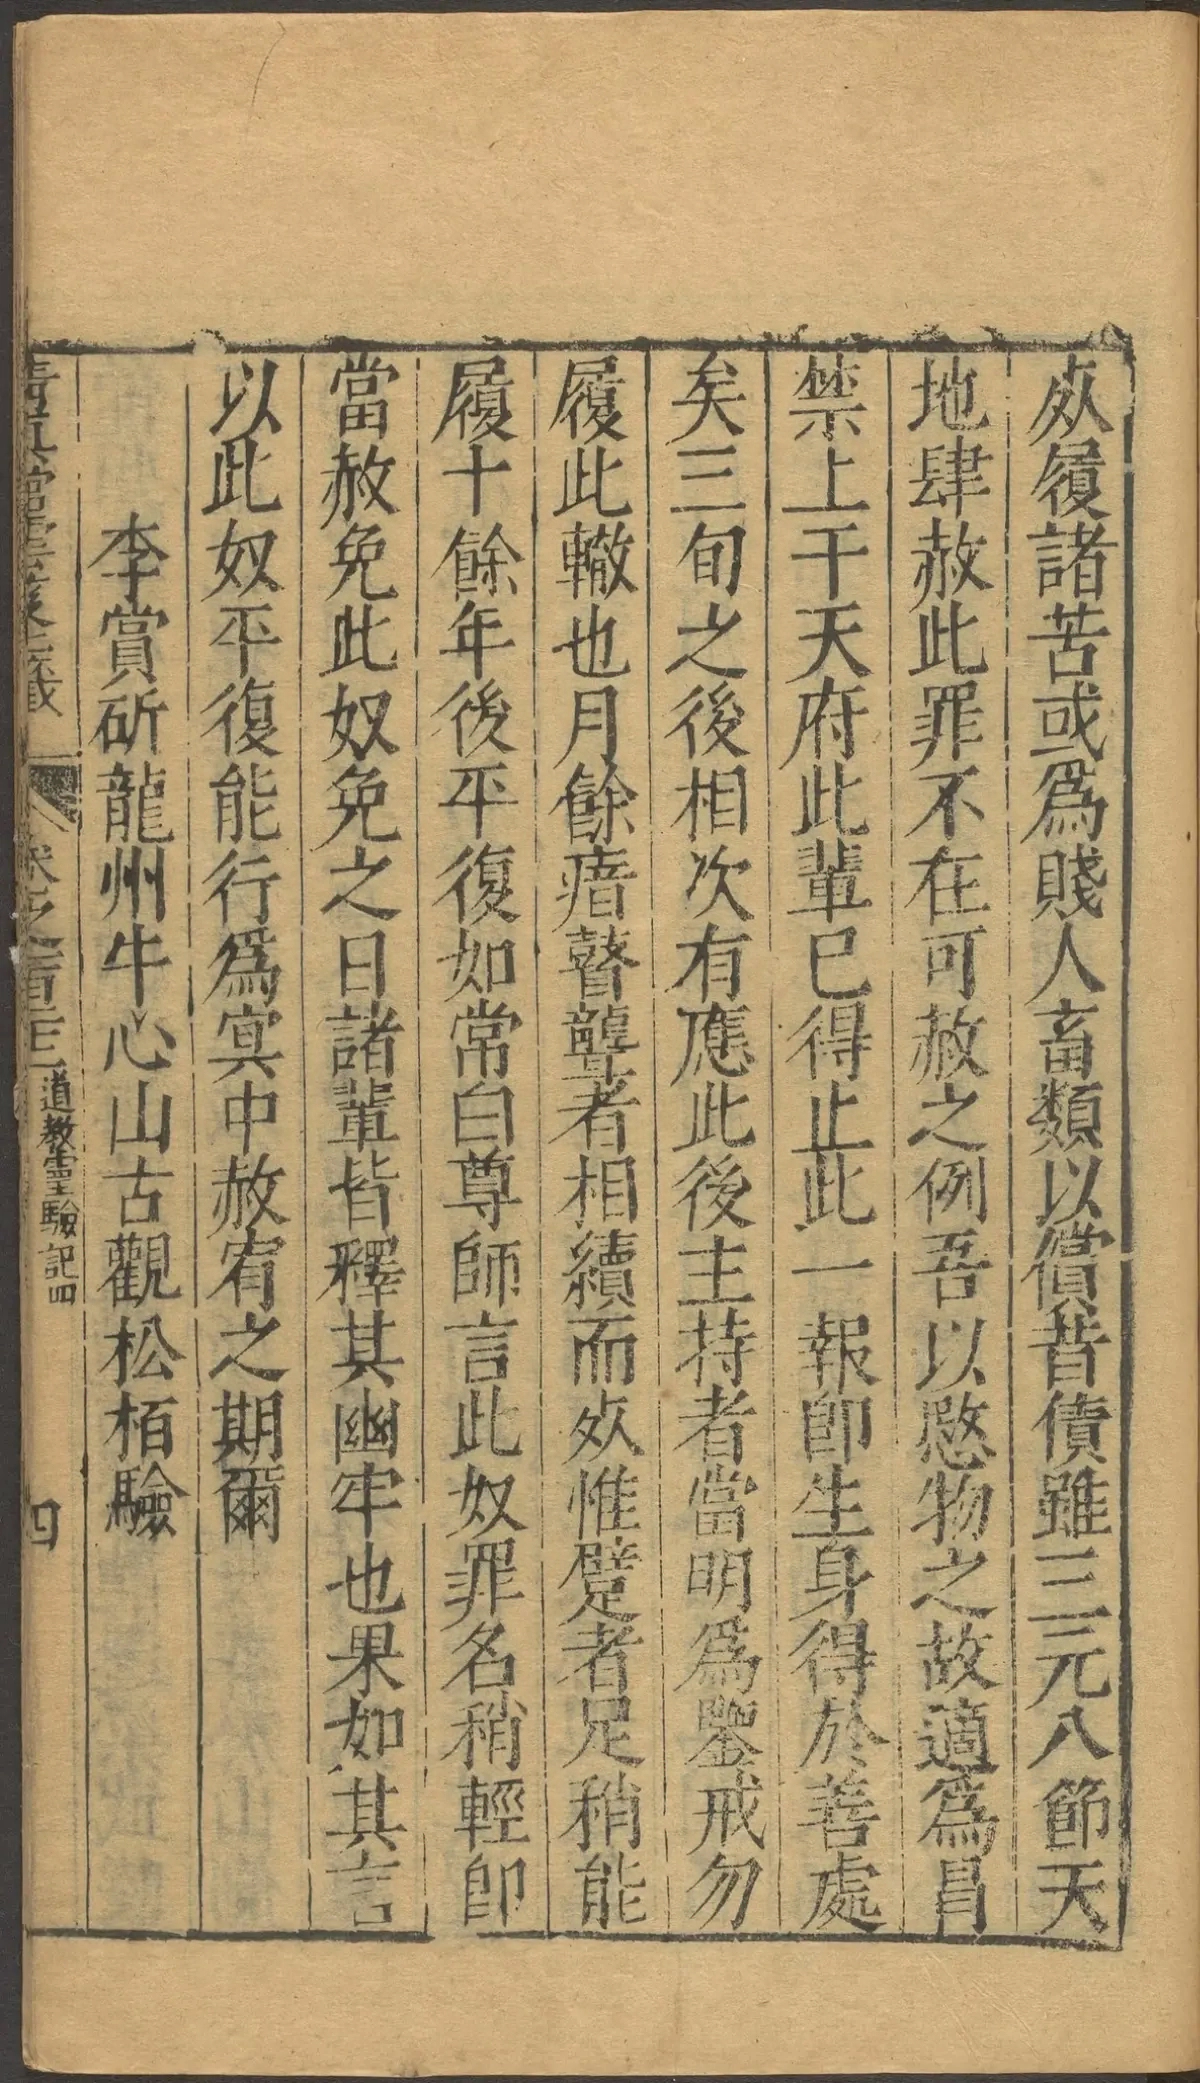 夾履諸苦或爲賤人畜類以償昔債雖三元八節天
地肆赦此罪不在可赦之例吾以愍物之故適爲昌
禁上干天府此輩已得止此一報卽生身得於善處
矣三旬之後相次有應此後主持者當明爲鑒戒勿
履此轍也月餘瘖瞽聾者相續而夾惟躄者足稍能
履十餘年後平復如常白尊師言此奴罪名稍輕卽
當赦免此奴免之日諸輩皆釋其幽牢也果如其言
以此奴平復能行爲冥中赦宥之期爾
李賞斫龍州牛心山古觀松栢驗
卷之一百二十 道教靈驗記四
四